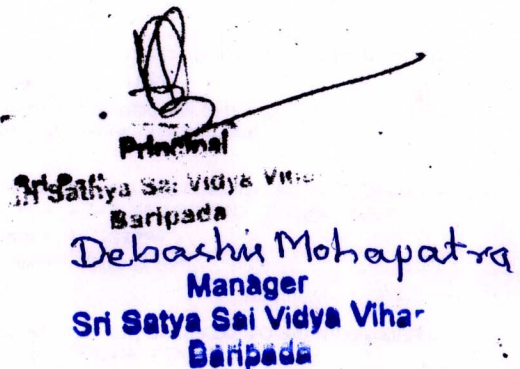 Principal
Sri Sathya Sai Vidya Vihar
Baripada
Debashis Mohapatra
Manager
Sri Satya Sai Vidya Vihar
Baripada